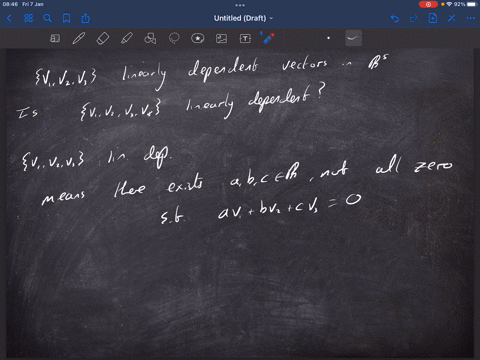 08:46 Fri 7 Jan
92%
Untitled (Draft)
{V₁, V₂, V₃} linearly dependent vectors in ℝ⁵
Is {V₁, V₂, V₃, V₄} linearly dependent?
{V₁, V₂, V₃} lin. dep.
means there exists a, b, c ∈ ℝ, not all zero
s.t. aV₁ + bV₂ + cV₃ = 0